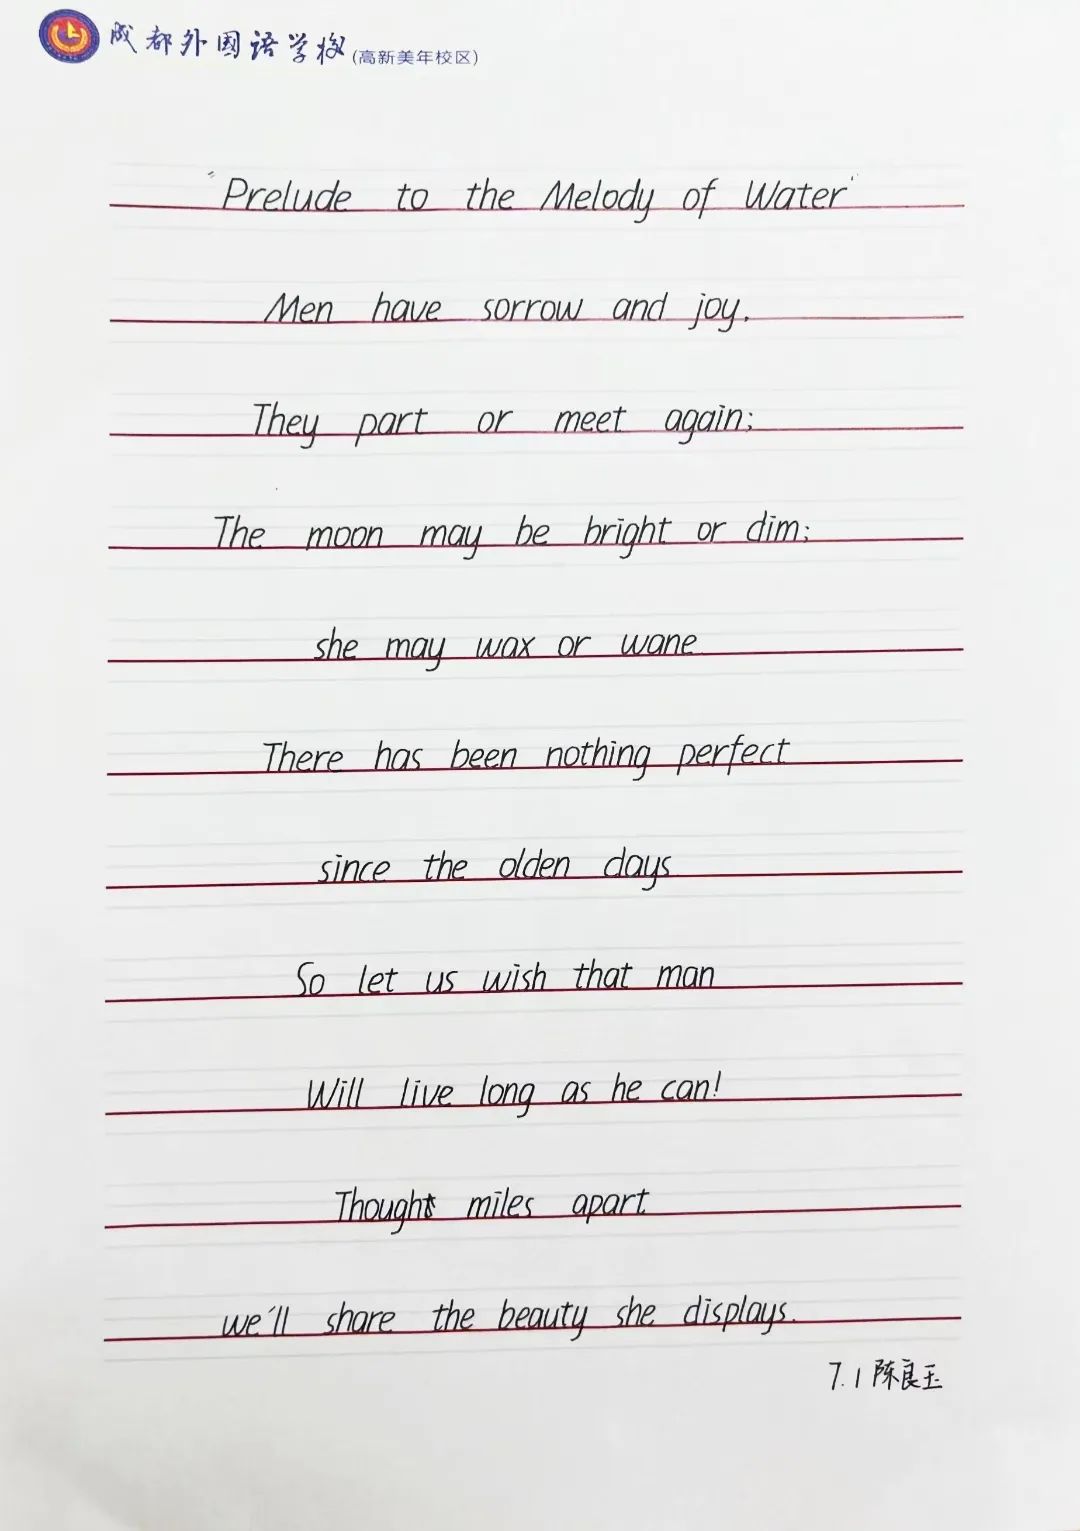 成都外国语学校(高新美年校区)
"Prelude to the Melody of Water"
Men have sorrow and joy.
They part or meet again;
The moon may be bright or dim;
she may wax or wane
There has been nothing perfect
since the olden days
So let us wish that man
Will live long as he can!
Thought miles apart
we'll share the beauty she displays.
7.1 陈良玉